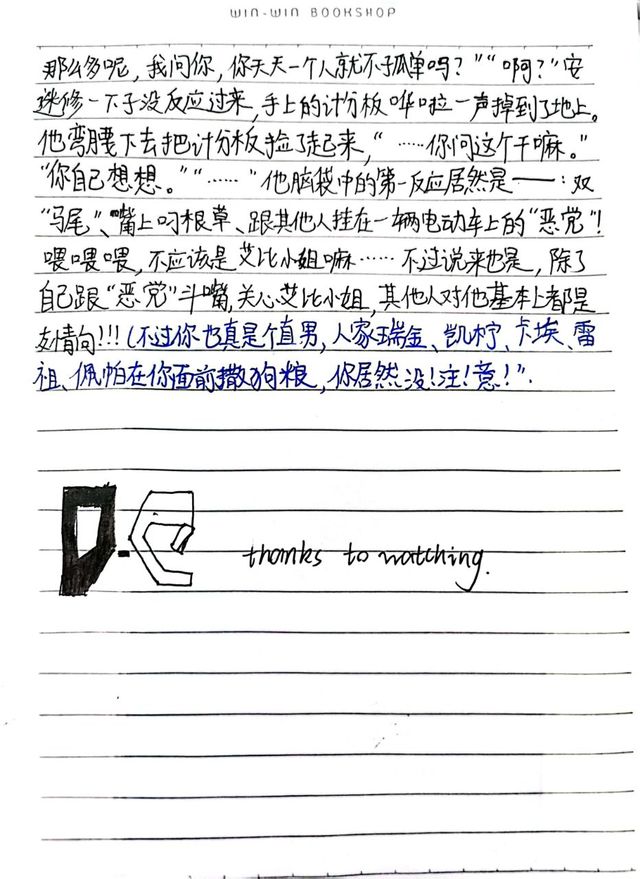 WIN-WIN BOOKSHOP
那么多呢，我问你，你天天一个人就不孤单吗？”“啊？”安
迷修一下子没反应过来，手上的计分板哗啦一声掉到了地上。
他弯腰下去把计分板捡了起来，“……你问这个干嘛。”
“你自己想想。”“……”他脑袋中的第一反应居然是——：双
“马尾”、嘴上叼根草、跟其他人挂在一辆电动车上的“恶党”！
喂喂喂，不应该是艾比小姐嘛……不过说来也是，除了
自己跟“恶党”斗嘴，关心艾比小姐，其他人对他基本上都是
友情向！！！（不过你也真是个直男，人家瑞金、凯柠、卡埃、雷
祖、佩帕在你面前撒狗粮，你居然没！注！意！”.
D-C
thanks to watching.